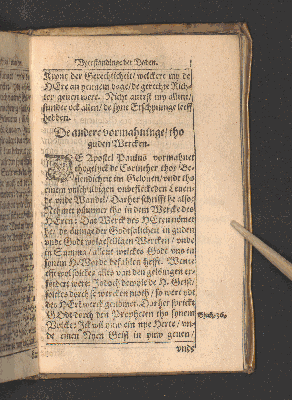 Wperstandinge der Doden.
Krone der Gerechticheit / welckere my de
HEre an yennem dage / de gerechte Rich-
ter geuen wert. Nicht auerst my allene /
sunder ock allen / de syne Erschyninge leeff
hebben.
De andere vormahninge / tho
guden Wercken.
DE Apostel Paulus vormahnet
thogelyck de Corinther tho Be-
stendicheit im Gelouen / vnde tho
einem vnschüldigen vnbeflecketen Leuen-
de vnde Wandel / Darher schrifft he also:
Nehmet yümmer tho in dem Wercke des
HEren: Dat Werck des HEren nömet
he de öuinge der Godtsalicheit in guden
vnde Godt wolgefelligen Wercken / vnde
in Summa / allent welckes Godt vns in
synem H. Worde befahlen hefft. Wente
efft wol solckes alles van den gelöuigen er-
fordert wert: Jedoch dewyle de H. Geist /
solckes dorch se wercken moth / so wert ydt
des HEren werck genömet. Darher spreckt
GOdt dorch den Propheten tho synem
Volcke: Jck wil yuw ein nye Herte / vn-
de einen Nyen Geist in yuw geuen /
Ezech. 36.
vnde